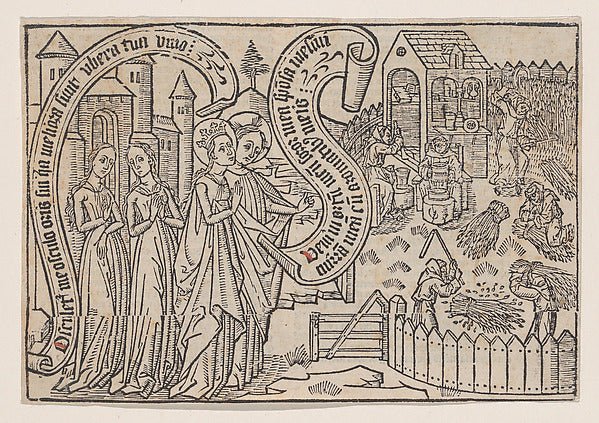 Osculet me osculo oris sui qa meliora sunt vbera tua vino
Veni in ortū meū soror mea spōsa messui
mirrā meā cū aromatib meis